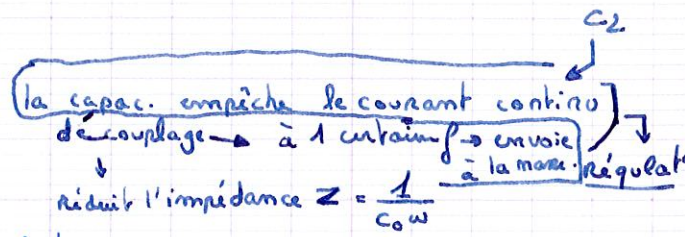 C2
la capac. empêche le courant contino
découplage → à 1 certain f → envoie
à la masse. Régulat°
↓
réduit l'impédance Z = 1/C₀ω